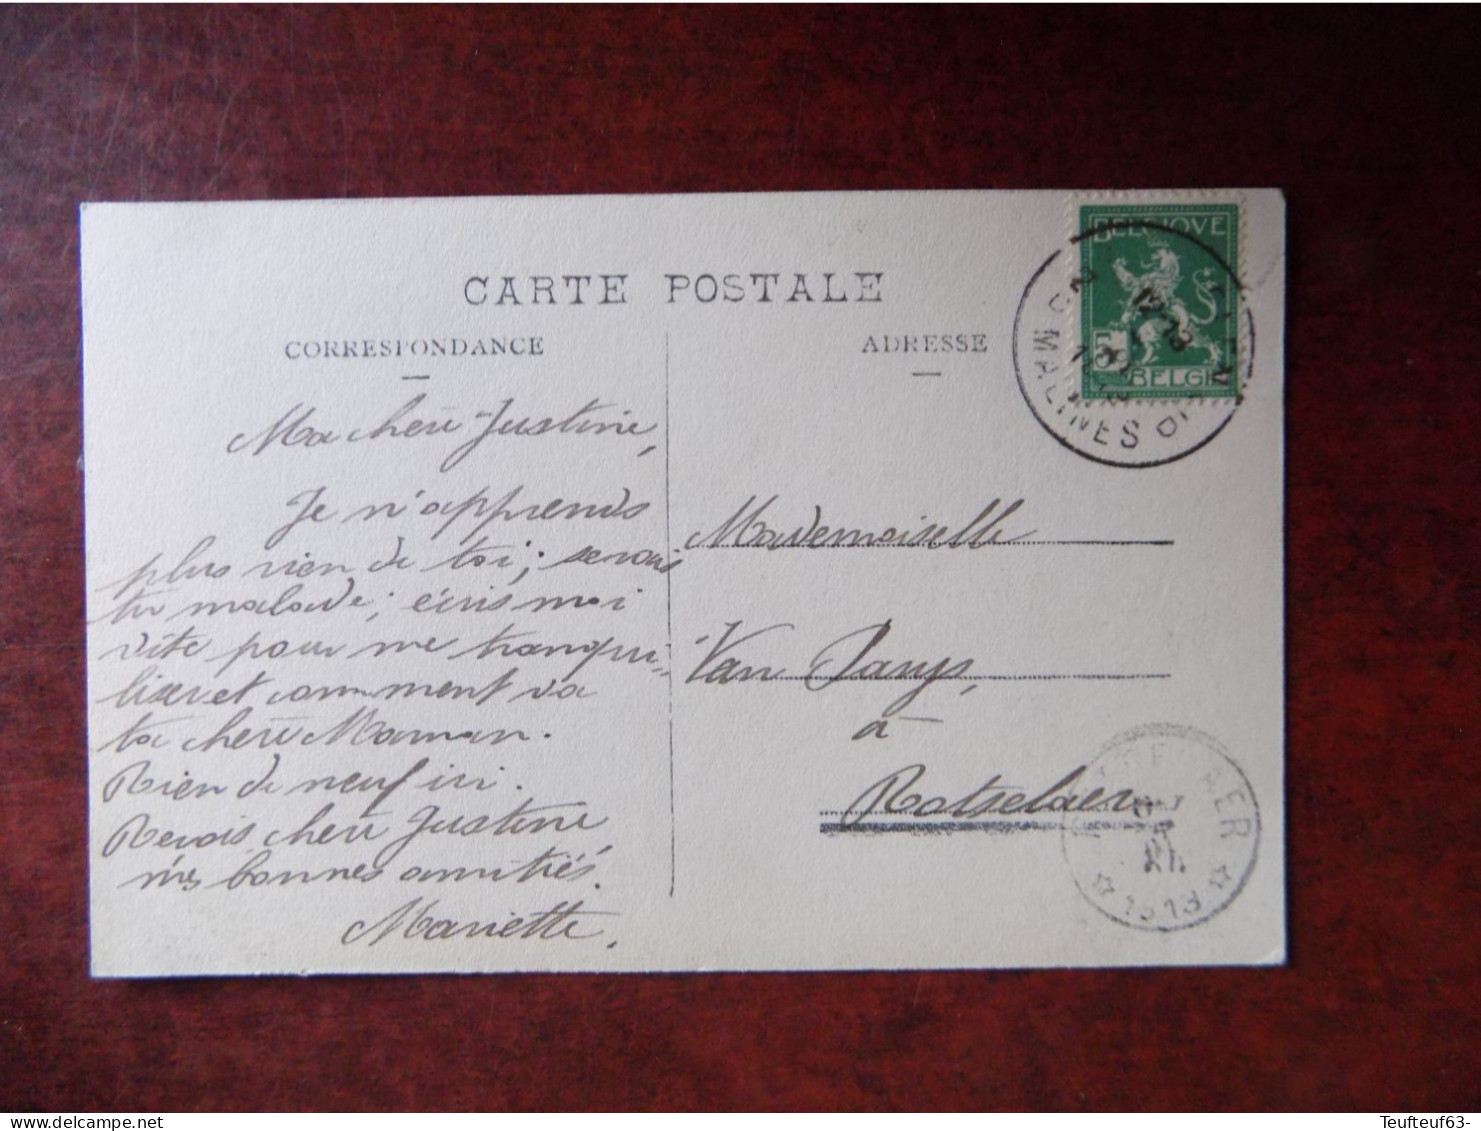 CARTE POSTALE
CORRESPONDANCE
ADRESSE
BELGIQVE
5
BELGIË
MALINES
Ma chère Justine,
Je n'apprends
plus rien de toi; serais
tu malade; écris moi
vite pour me tranqui-
liser et comment va
ta chère Maman.
Rien de neuf ici.
Reçois chère Justine
mes bonnes amitiés.
Mariette.
Mademoiselle
Van
à
Rotselaer
1913
Teufteuf63-